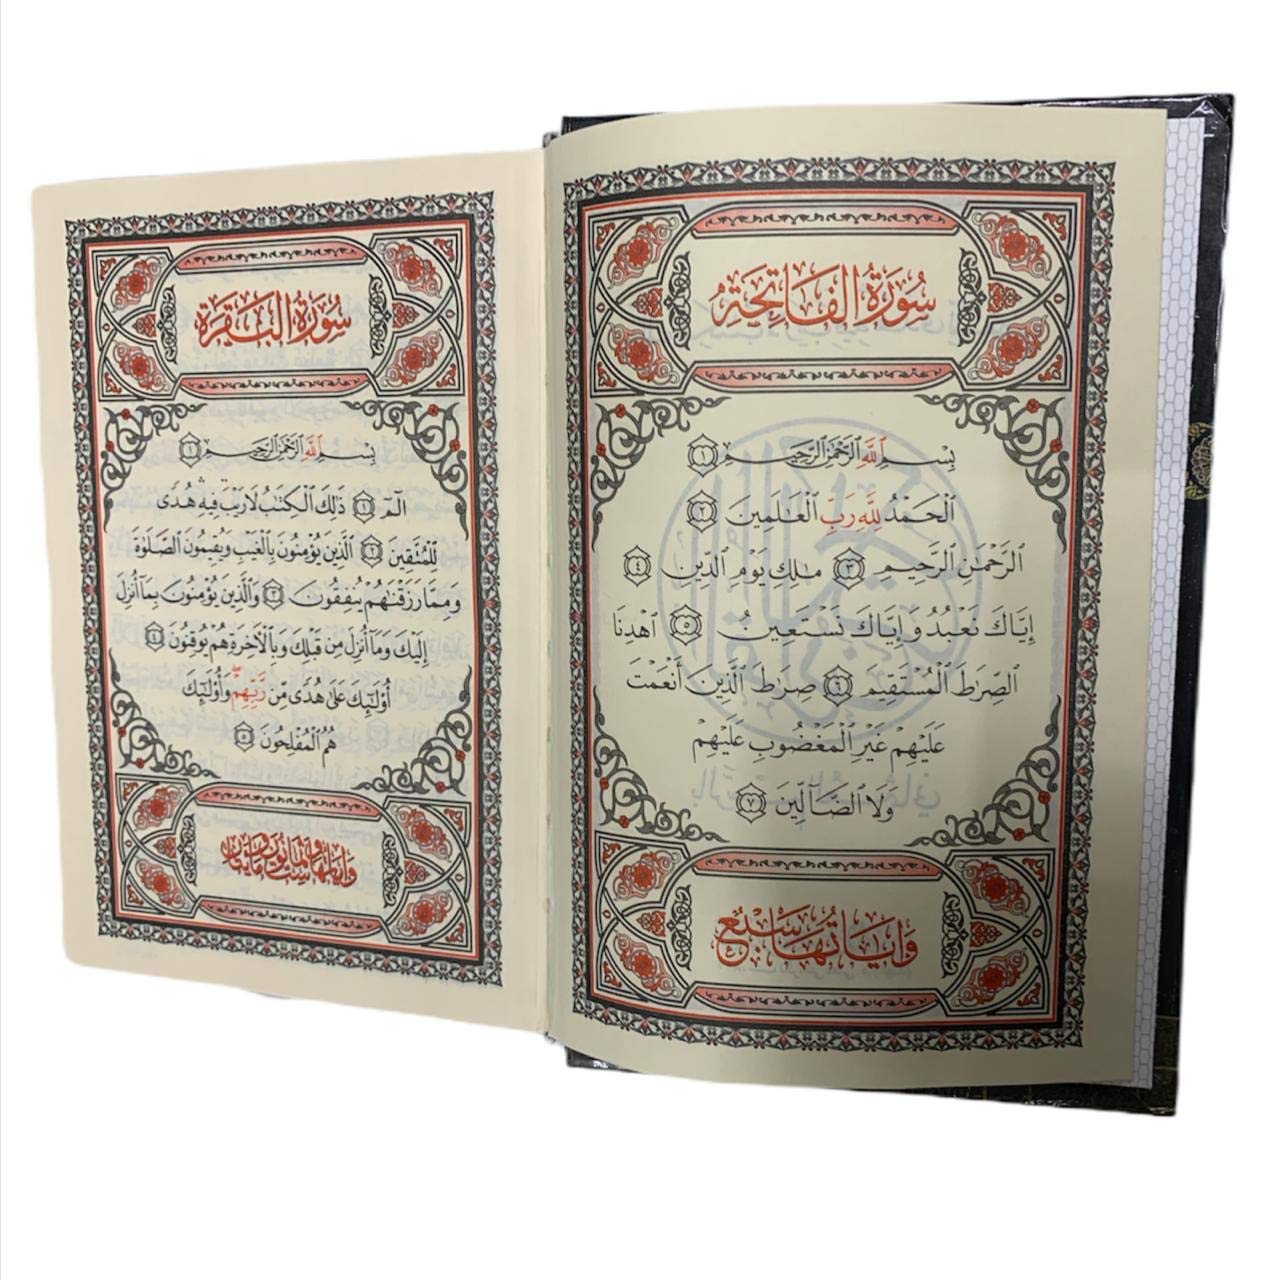 سُورَةُ الفَاتِحَةِ
بِسْمِ ٱللَّهِ ٱلرَّحْمَٰنِ ٱلرَّحِيمِ ١
ٱلْحَمْدُ لِلَّهِ رَبِّ ٱلْعَٰلَمِينَ ٢
ٱلرَّحْمَٰنِ ٱلرَّحِيمِ ٣ مَٰلِكِ يَوْمِ ٱلدِّينِ ٤
إِيَّاكَ نَعْبُدُ وَإِيَّاكَ نَسْتَعِينُ ٥ ٱهْدِنَا
ٱلصِّرَٰطَ ٱلْمُسْتَقِيمَ ٦ صِرَٰطَ ٱلَّذِينَ أَنْعَمْتَ
عَلَيْهِمْ غَيْرِ ٱلْمَغْضُوبِ عَلَيْهِمْ
وَلَا ٱلضَّآلِّينَ ٧
وَآيَاتُهَا سَبْعٌ
سُورَةُ البَقَرَةِ
بِسْمِ ٱللَّهِ ٱلرَّحْمَٰنِ ٱلرَّحِيمِ ١
الٓمٓ ١ ذَٰلِكَ ٱلْكِتَٰبُ لَا رَيْبَ فِيهِ هُدًى
لِّلْمُتَّقِينَ ٢ ٱلَّذِينَ يُؤْمِنُونَ بِٱلْغَيْبِ وَيُقِيمُونَ ٱلصَّلَوٰةَ
وَمِمَّا رَزَقْنَٰهُمْ يُنفِقُونَ ٣ وَٱلَّذِينَ يُؤْمِنُونَ بِمَآ أُنزِلَ
إِلَيْكَ وَمَآ أُنزِلَ مِن قَبْلِكَ وَبِٱلْأَخِرَةِ هُمْ يُوقِنُونَ ٤
أُو۟لَٰٓئِكَ عَلَىٰ هُدًى مِّن رَّبِّهِمْ وَأُو۟لَٰٓئِكَ
هُمُ ٱلْمُفْلِحُونَ ٥